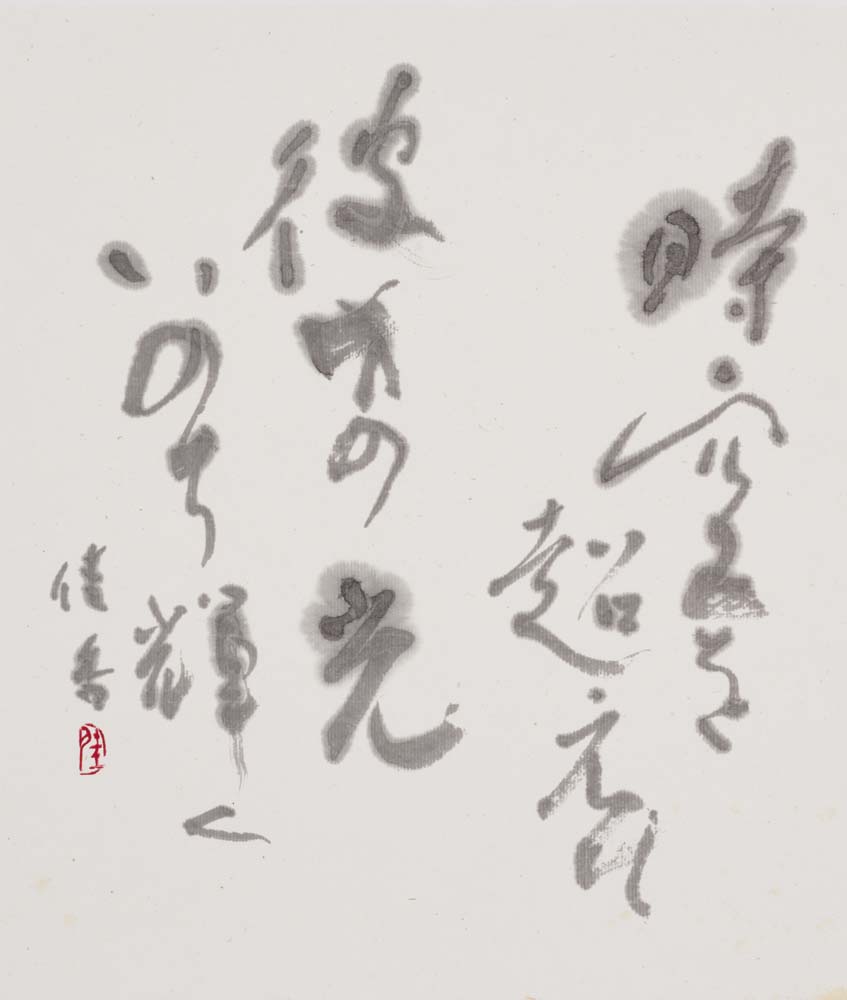 時空を
超
彼方の光
いのち輝く
佳香